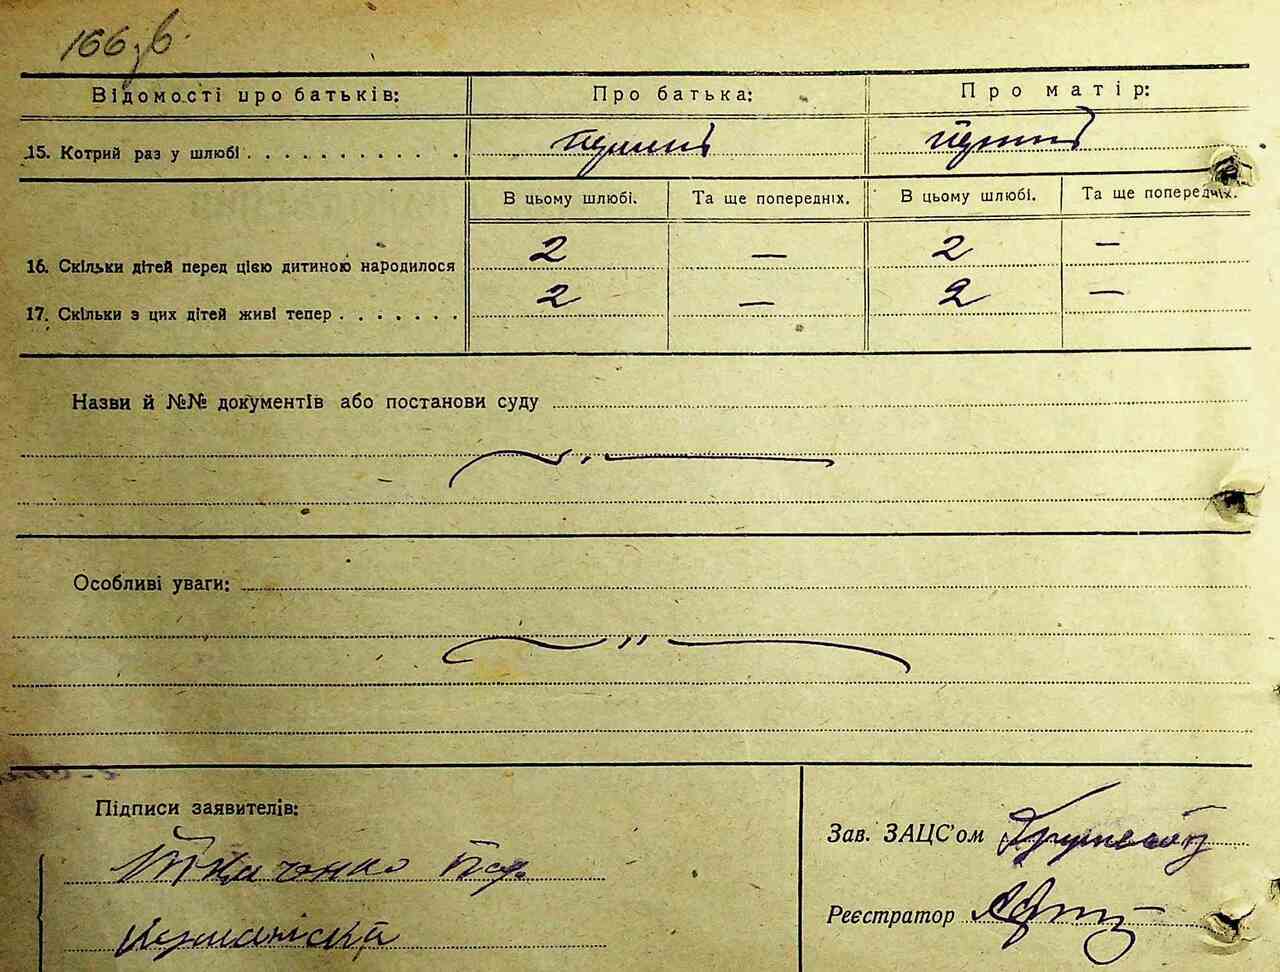 166 зв.
Відомості про батьків: Про батька: Про матір:
15. Котрий раз у шлюбі . . . . . . . . . . .
В цьому шлюбі. Та ще попередніх. В цьому шлюбі. Та ще попередніх.
16. Скільки дітей перед цією дитиною народилося 2 — 2 —
17. Скільки з цих дітей живі тепер . . . . . . . 2 — 2 —
Назви й №№ документів або постанови суду
Особливі уваги:
Підписи заявителів:
Зав. ЗАЦС'ом
Ткаченко
Реєстратор